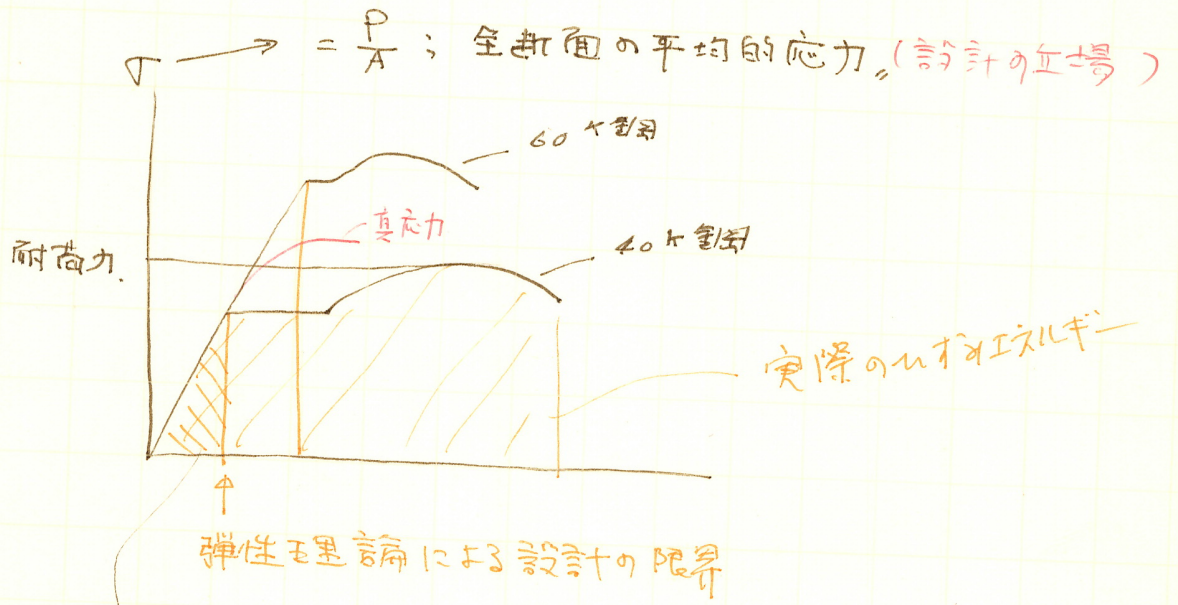 σ → = P/A ; 全断面の平均的応力。(設計の立場)
60K鋼
真応力
40K鋼
耐荷力.
実際のひずみエネルギー
弾性理論による設計の限界